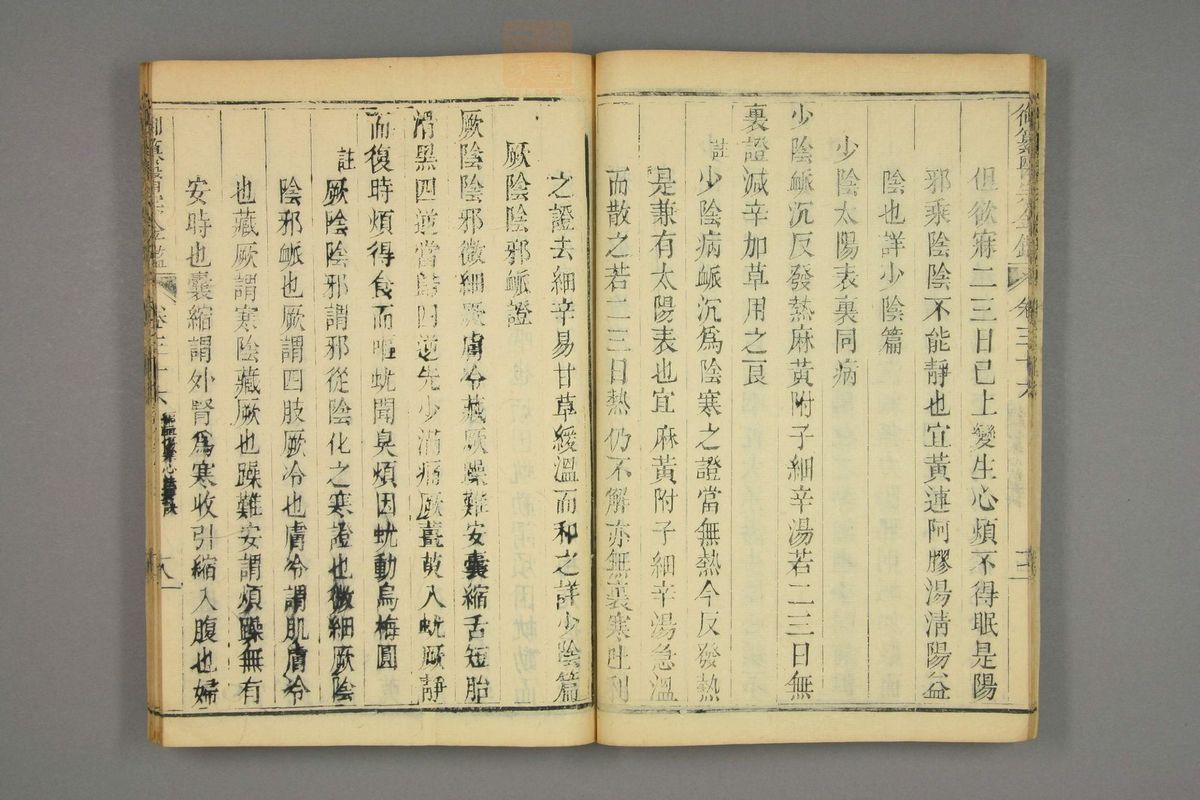 但欲寐二三日已上變生心煩不得眠是陽
邪乘陰陰不能靜也宜黃連阿膠湯清陽益
陰也詳少陰篇
少陰太陽表裏同病
少陰脈沉反發熱麻黃附子細辛湯若二三日無
裏證減辛加草用之良
註少陰病脈沉爲陰寒之證當無熱今反發熱
是兼有太陽表也宜麻黃附子細辛湯急溫
而散之若二三日熱仍不解亦無裏寒吐利
之證去細辛易甘草緩溫而和之詳少陰篇
厥陰陰邪脈證
厥陰陰邪微細厥膚冷藏厥躁難安囊縮舌短胎
滑黑四逆當歸四逆先少滿痛厥囊鼓入蚘厥靜
而復時煩得食而嘔蚘聞臭煩因蚘動烏梅圓
註厥陰陰邪謂邪從陰化之寒證也微細厥陰
陰邪脈也厥謂四肢厥冷也膚冷謂肌膚冷
也藏厥謂寒陰藏厥也躁難安謂煩躁無有
安時也囊縮謂外腎爲寒收引縮入腹也婦
卷三十六